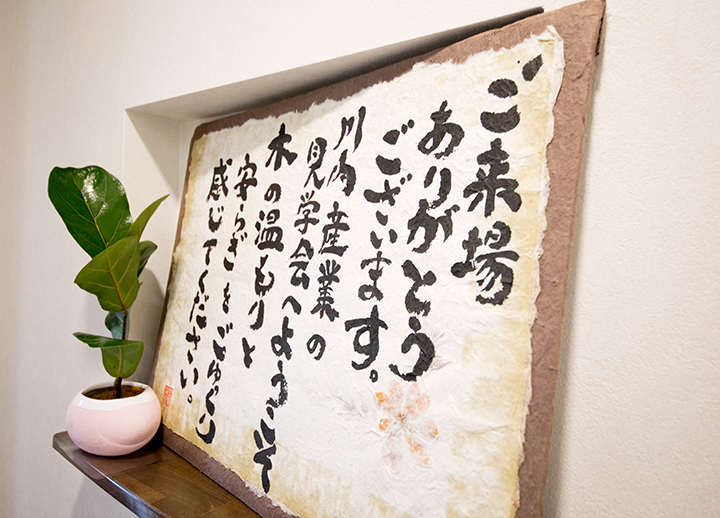 ご来場
ありがとう
ございます。
川内産業の
見学会へようこそ
木の温もりと
安らぎをごゆっくり
感じてください。